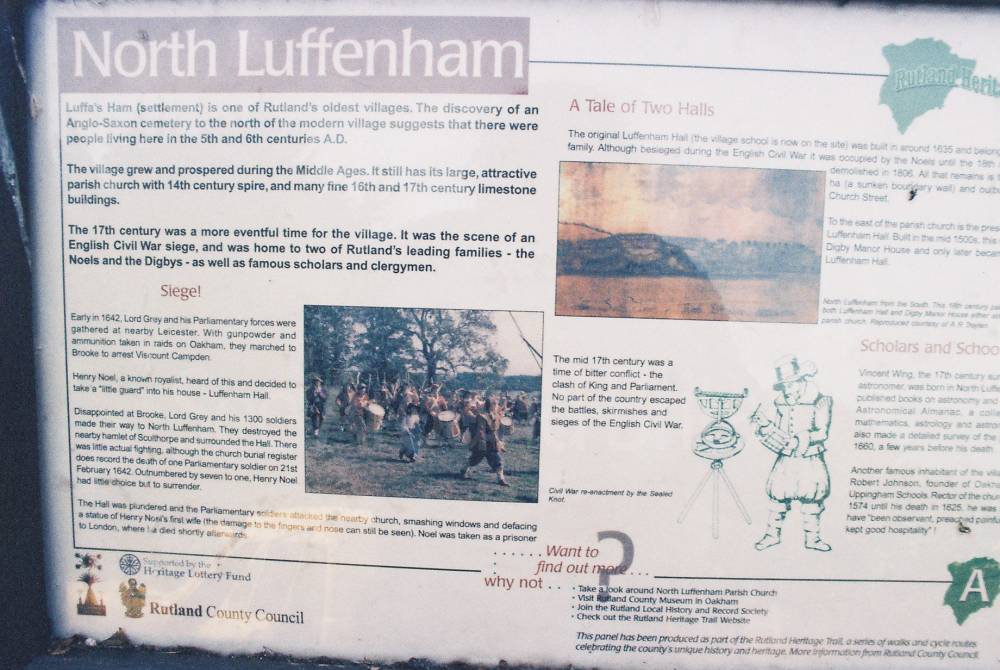 North Luffenham
Luffa's Ham (settlement) is one of Rutland's oldest villages. The discovery of an
Anglo-Saxon cemetery to the north of the modern village suggests that there were
people living here in the 5th and 6th centuries A.D.
The village grew and prospered during the Middle Ages. It still has its large, attractive
parish church with 14th century spire, and many fine 16th and 17th century limestone
buildings.
The 17th century was a more eventful time for the village. It was the scene of an
English Civil War siege, and was home to two of Rutland's leading families - the
Noels and the Digbys - as well as famous scholars and clergymen.
Siege!
Early in 1642, Lord Grey and his Parliamentary forces were
gathered at nearby Leicester. With gunpowder and
ammunition taken in raids on Oakham, they marched to
Brooke to arrest Viscount Campden.
Henry Noel, a known royalist, heard of this and decided to
take a "little guard" into his house - Luffenham Hall.
Disappointed at Brooke, Lord Grey and his 1300 soldiers
made their way to North Luffenham. They destroyed the
nearby hamlet of Sculthorpe and surrounded the Hall. There
was little actual fighting, although the church burial register
does record the death of one Parliamentary soldier on 21st
February 1642. Outnumbered by seven to one, Henry Noel
had little choice but to surrender.
The Hall was plundered and the Parliamentary soldiers attacked the nearby church, smashing windows and defacing
a statue of Henry Noel's first wife (the damage to the fingers and nose can still be seen). Noel was taken as a prisoner
to London, where he died shortly afterwards.
Supported by the
Heritage Lottery Fund
Rutland County Council
Rutland Herit
A Tale of Two Halls
The original Luffenham Hall (the village school is now on the site) was built in around 1635 and belong
family. Although besieged during the English Civil War it was occupied by the Noels until the 18th
demolished in 1806. All that remains is
ha (a sunken boundary wall) and outb
Church Street.
To the east of the parish church is the pres
Luffenham Hall. Built in the mid 1500s, this
Digby Manor House and only later becam
Luffenham Hall.
North Luffenham from the South. This 18th century
both Luffenham Hall and Digby Manor House either
parish church. Reproduced courtesy of A R Traylen
The mid 17th century was a
time of bitter conflict - the
clash of King and Parliament.
No part of the country escaped
the battles, skirmishes and
sieges of the English Civil War.
Civil War re-enactment by the Sealed
Knot.
Scholars and Schoo
Vincent Wing, the 17th century sur
astronomer, was born in North Luffe
published books on astronomy and
Astronomical Almanac, a colle
mathematics, astrology and astro
also made a detailed survey of the
1660, a few years before his death.
Another famous inhabitant of the villa
Robert Johnson, founder of Oakha
Uppingham Schools. Rector of the chur
1574 until his death in 1625, he was
have "been observant, preached painfu
kept good hospitality"!
Want to
find out more...
why not...
?
• Take a look around North Luffenham Parish Church
• Visit Rutland County Museum in Oakham
• Join the Rutland Local History and Record Society
• Check out the Rutland Heritage Trail Website
This panel has been produced as part of the Rutland Heritage Trail, a series of walks and cycle routes
celebrating the county's unique history and heritage. More information from Rutland County Council.
A